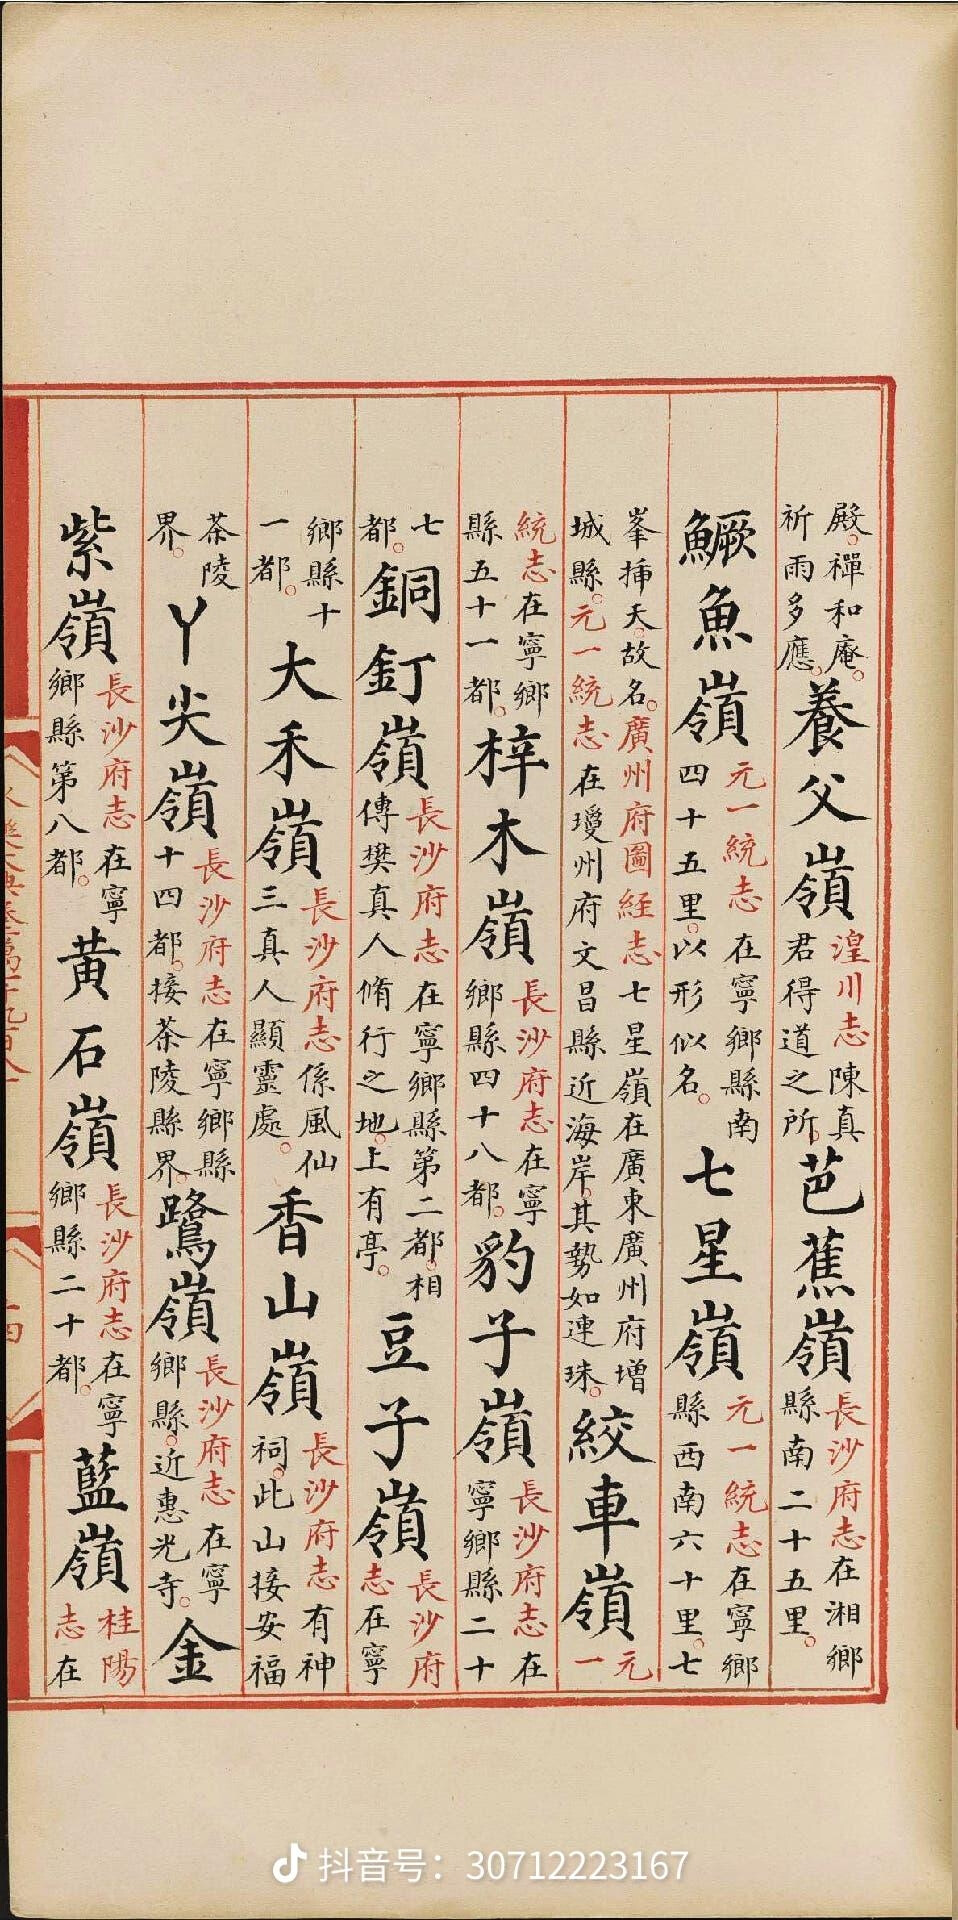 殿。禪和庵。祈雨多應。養父嶺湟川志陳真君得道之所。芭蕉嶺長沙府志在湘鄉縣南二十五里。
鱖魚嶺元一統志在寧鄉縣南四十五里。以形似名。七星嶺元一統志在寧鄉縣西南六十里。七
峯揷天。故名。廣州府圖經志七星嶺在廣東廣州府增城縣。元一統志在瓊州府文昌縣近海岸。其勢如連珠。絞車嶺元一
統志在寧鄉縣五十一都。梓木嶺長沙府志在寧鄉縣四十八都。豹子嶺長沙府志在寧鄉縣二十
七都。銅釘嶺長沙府志在寧鄉縣第二都。相傳樊真人脩行之地。上有亭。豆子嶺長沙府志在寧
鄉縣十一都。大禾嶺長沙府志係風仙三真人顯靈處。香山嶺長沙府志有神祠。此山接安福
茶陵界。丫尖嶺長沙府志在寧鄉縣十四都。接茶陵縣界。鷺嶺長沙府志在寧鄉縣。近惠光寺。金
紫嶺長沙府志在寧鄉縣第八都。黄石嶺長沙府志在寧鄉縣二十都。藍嶺桂陽志在
抖音号：30712223167